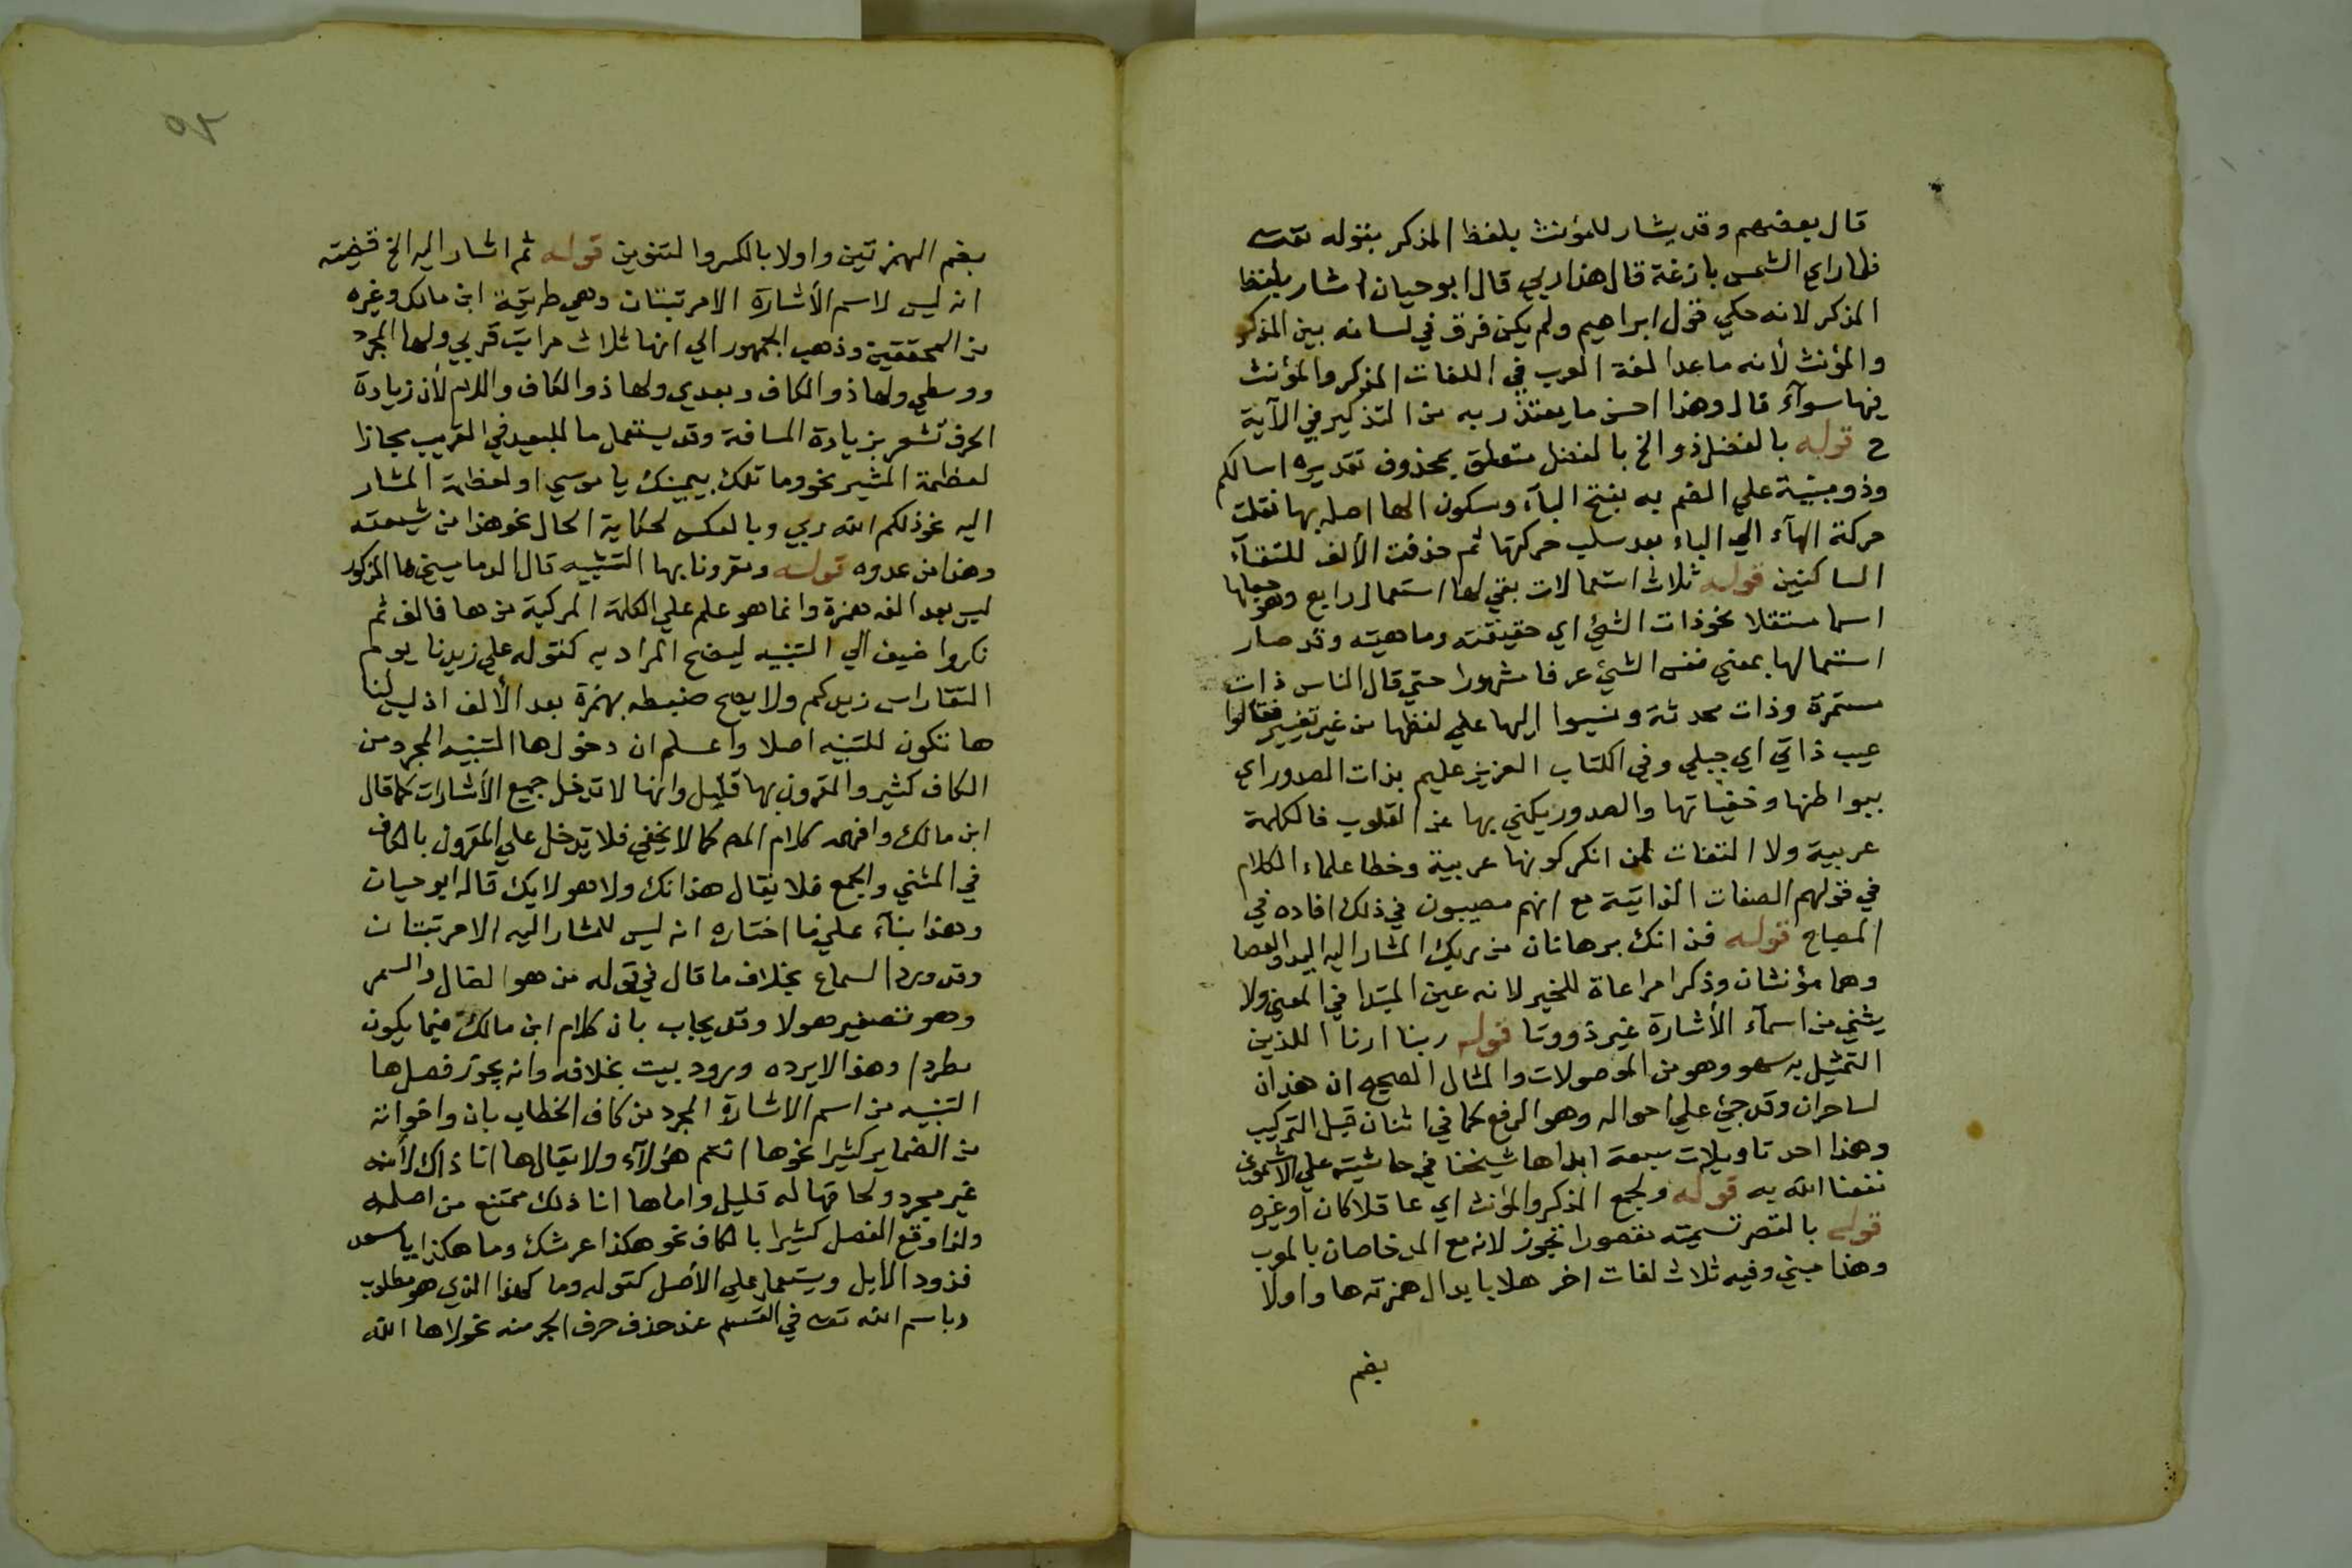 قال بعضهم وقد يشار للمؤنث بلفظ المذكر بقوله تعالى
فلما راي الشمس بازغة قال هذا ربي قال ابو حيان اشار بلفظ
المذكر لانه حكي قول ابراهيم ولم يكن فرق في لسانه بين المذكر
والمؤنث لأنه ما عدا لغة العرب في اللغات المذكر والمؤنث
فيها سوآء قال وهذا احسن ما يعتذر به من التذكير في الآية
ح قوله بالفضل ذو الخ بالفضل متعلق بمحذوف تقديره اسالكم
وذو مبنية علي الضم به بفتح البآء وسكون الها اصله بها نقلت
حركة الهآء الي الباء بعد سلب حركتها ثم حذفت الألف للتقآء
الساكنين قوله ثلاث استعمالات بقي لها استعمال رابع وهو جعلها
اسما مستقلا نحو ذات الشئ اي حقيقته وماهيته وقد صار
استعمالها بمعني نفس الشئ عرفا مشهورا حتي قال الناس ذات
مستمرة وذات محدثة ونسبوا اليها علي لفظها من غير تغيير فقالوا
عيب ذاتي اي جبلي وفي الكتاب العزيز عليم بذات الصدور اي
ببواطنها وخفياتها والصدور يكني بها عن القلوب فالكلمة
عربية ولا التفات لمن انكر كونها عربية وخطا علماء الكلام
في قولهم الصفات الذاتية مع انهم مصيبون في ذلك افاده في
المصباح قوله فذانك برهانان من ربك المشار اليه اليد والعصا
وهما مؤنثان وذكرا مراعاة للخبر لانه عين المبتدا في المعني ولا
يثني من اسمآء الأشارة غير ذو وتا قوله ربنا ارنا اللذين
التمثيل به سهو وهو من الموصولات والمثال الصحيح ان هذان
لساحران وقد جئ علي احواله وهو الرفع كما في اثنان قبل التركيب
وهذا احد تاويلات سبعة ابداها شيخنا في حاشيته علي الاشموني
نفعنا الله به قوله ولجمع المذكر والمؤنث اي عاقلا كان او غيره
قوله بالقصر تسميته مقصورا تجوز لانه مع المد خاصان بالمعرب
وهذا مبني وفيه ثلاث لغات اخر هلا بابدال همزته ها واولا
بضم
بضم الهمزتين واولا بالكسر والتنوين قوله ثم اشار اليه الخ قضيته
انه ليس لاسم الأشارة الا مرتبتان وهي طريقة ابن مالك وغيره
من المحققين وذهب الجمهور الي انها ثلاث مراتب قربي ولها المجرد
ووسطي ولها ذو الكاف وبعدي ولها ذو الكاف واللام لأن زيادة
الحرف تشعر بزيادة المسافة وقد يستعمل ما للبعيد في القريب مجازا
لعظمة المشير نحو وما تلك بيمينك يا موسي او لعظمة المشار
اليه نحو ذلكم الله ربي وبالعكس لحكاية الحال نحو هذا من شيعته
وهذا من عدوه قوله ومقرونا بها التنبيه قال الدماميني ها المذكور
ليس بعد الفه همزة وانما هو علم علي الكلمة المركبة من ها فالف ثم
نكر واضيف الي التنبيه ليضح المراد به كقوله علي زيدنا يوم
النقا راس زيدكم ولا يصح ضبطه بهمزة بعد الألف اذ ليس لنا
هآ تكون للتنبيه اصلا واعلم ان دخول ها التنبيه المجرد من
الكاف كثير والمقرون بها قليل وانها لا تدخل جميع الأشارات كما قال
ابن مالك وافهمه كلام المص كما لا يخفي فلا تدخل علي المقرون بالكاف
في المثني والجمع فلا يقال هذانك ولا هولايك قاله ابو حيان
وهذا بنآء علي ما اختاره انه ليس للمشار اليه الا مرتبتان
وقد ورد السماع بخلاف ما قال في قوله من هوا لضال والسمر
وهو تصغير هولا وقد يجاب بان كلام ابن مالك فيما يكون
مطردا وهذا لا يرده ورود بيت بخلافه وانه يجوز فصل ها
التنبيه من اسم الاشارة المجرد من كاف الخطاب بان واخواته
من الضماير كثيرا نحو ها انتم هؤلآء ولا يقال ها انا ذاك لأنه
غير مجرد ولحاقها له قليل واما ها انا ذلك ممتنع من اصله
ولذا وقع الفصل كثيرا بالكاف نحو هكذا عرشك وما هكذا يا سعد
فزود الابل ويستعمل علي الأصل كقوله وما كهذا الذي هو مطلوب
وباسم الله تعالى في القسم عند حذف حرف الجر منه نحو لا ها الله